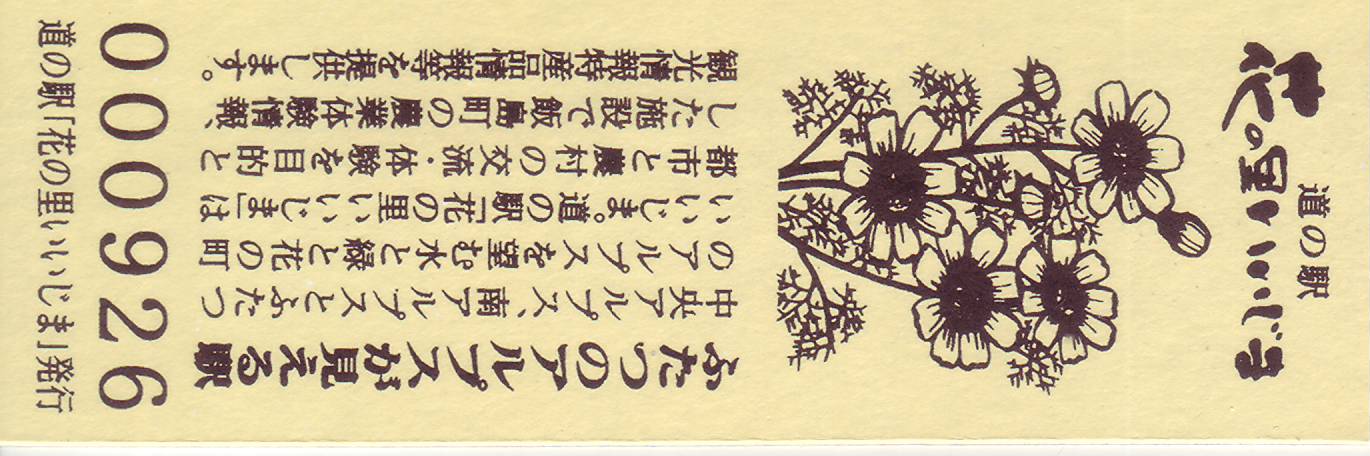 道の駅
花の里いいじま
ふたつのアルプスが見える駅
中央アルプス、南アルプスとふたつ
のアルプスを望む水と緑と花の町
いいじま。道の駅「花の里いいじま」は
都市と農村の交流・体験を目的と
した施設で飯島町の農業体験情報、
観光情報特産品情報等を提供します。
000926
道の駅「花の里いいじま」発行